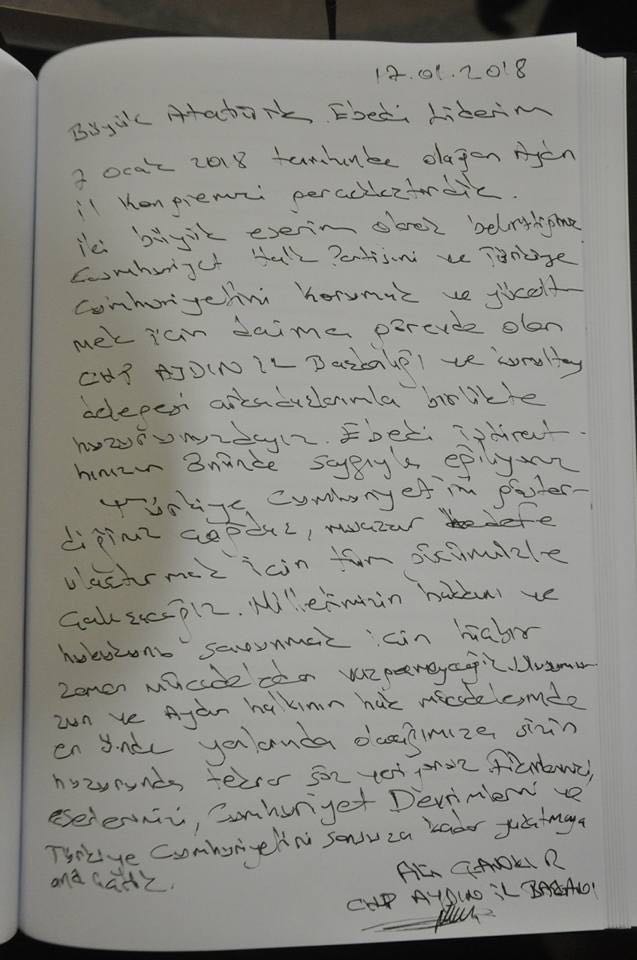 17.01.2018
Büyük Atatürk Ebedi Liderim
7 Ocak 2018 tarihinde olağan Aydın
il Kongremizi gerçekleştirdik.
iki büyük eserim olarak belirttiğiniz
Cumhuriyet Halk Partisini ve Türkiye
Cumhuriyetini korumak ve yücelt-
mek için daima görevde olan
CHP AYDIN İL Başkanlığı ve kurultay
delegesi arkadaşlarımla birlikte
huzurunuzdayız. Ebedi
önünde saygıyla eğiliyoruz
Türkiye Cumhuriyetini göster-
diğiniz çağdaş, muasır hedefe
ulaştırmak için tüm gücümüzle
Çalışacağız. Milletimizin hakkını ve
hukukunu savunmak için hiçbir
zaman mücadeleden vazgeçmeyeceğiz. Ulusumu-
zun ve Aydın halkının hak mücadelesinde
en önde yanlarında olacağımıza sizin
huzurunda tekrar söz veriyoruz. Fikirlerinizi,
eserlerinizi, Cumhuriyet Devrimlerini ve
Türkiye Cumhuriyetini sonsuza kadar yaşatmaya
and içtik.
ALİ ÇANKIR
CHP AYDIN İL BAŞKANI